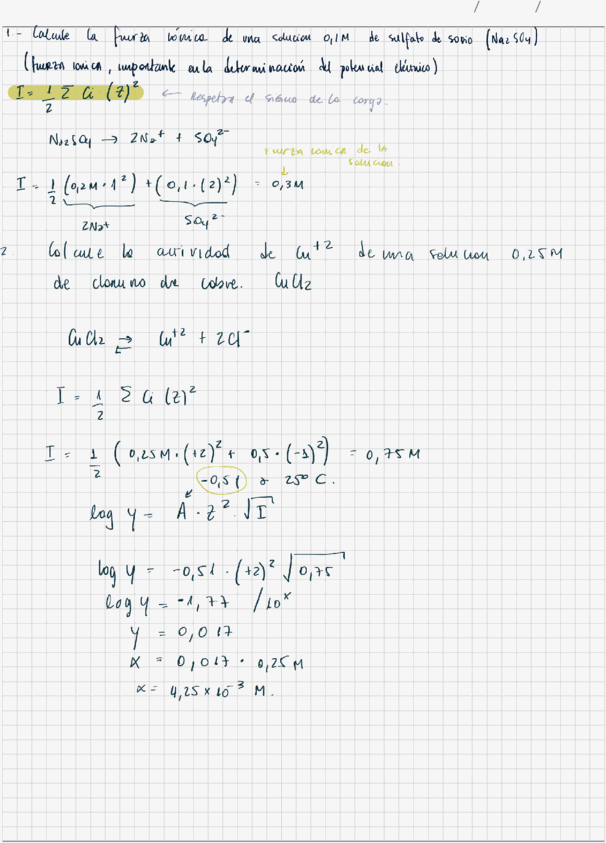 1.- Calcule la fuerza iónica de una solucion 0,1M de sulfato de sodio (Na2SO4)
(fuerza ionica, importante en la determinación del potencial eléctrico)
I = 1/2 Σ Ci (Z)² ← Respetra el signo de la carga.
Na2SO4 → 2Na⁺ + SO4²⁻
Fuerza ionica de la
solucion.
↓
I = 1/2 (0,2M · 1²) + (0,1 · (2)²) = 0,3M
2Na⁺ SO4²⁻
2 Calcule la actividad de Cu⁺² de una solucion 0,25M
de cloruro de cobre. CuCl2
CuCl2 ⇌ Cu⁺² + 2Cl⁻
I = 1/2 Σ Ci (Z)²
I = 1/2 (0,25M · (+2)² + 0,5 · (-1)²) = 0,75M
-0,51 a 25° C.
log γ = A · z² · √I
log γ = -0,51 · (+2)² √0,75
log γ = -1,77 /10ˣ
γ = 0,017
α = 0,017 · 0,25M
α = 4,25 x 10⁻³ M.